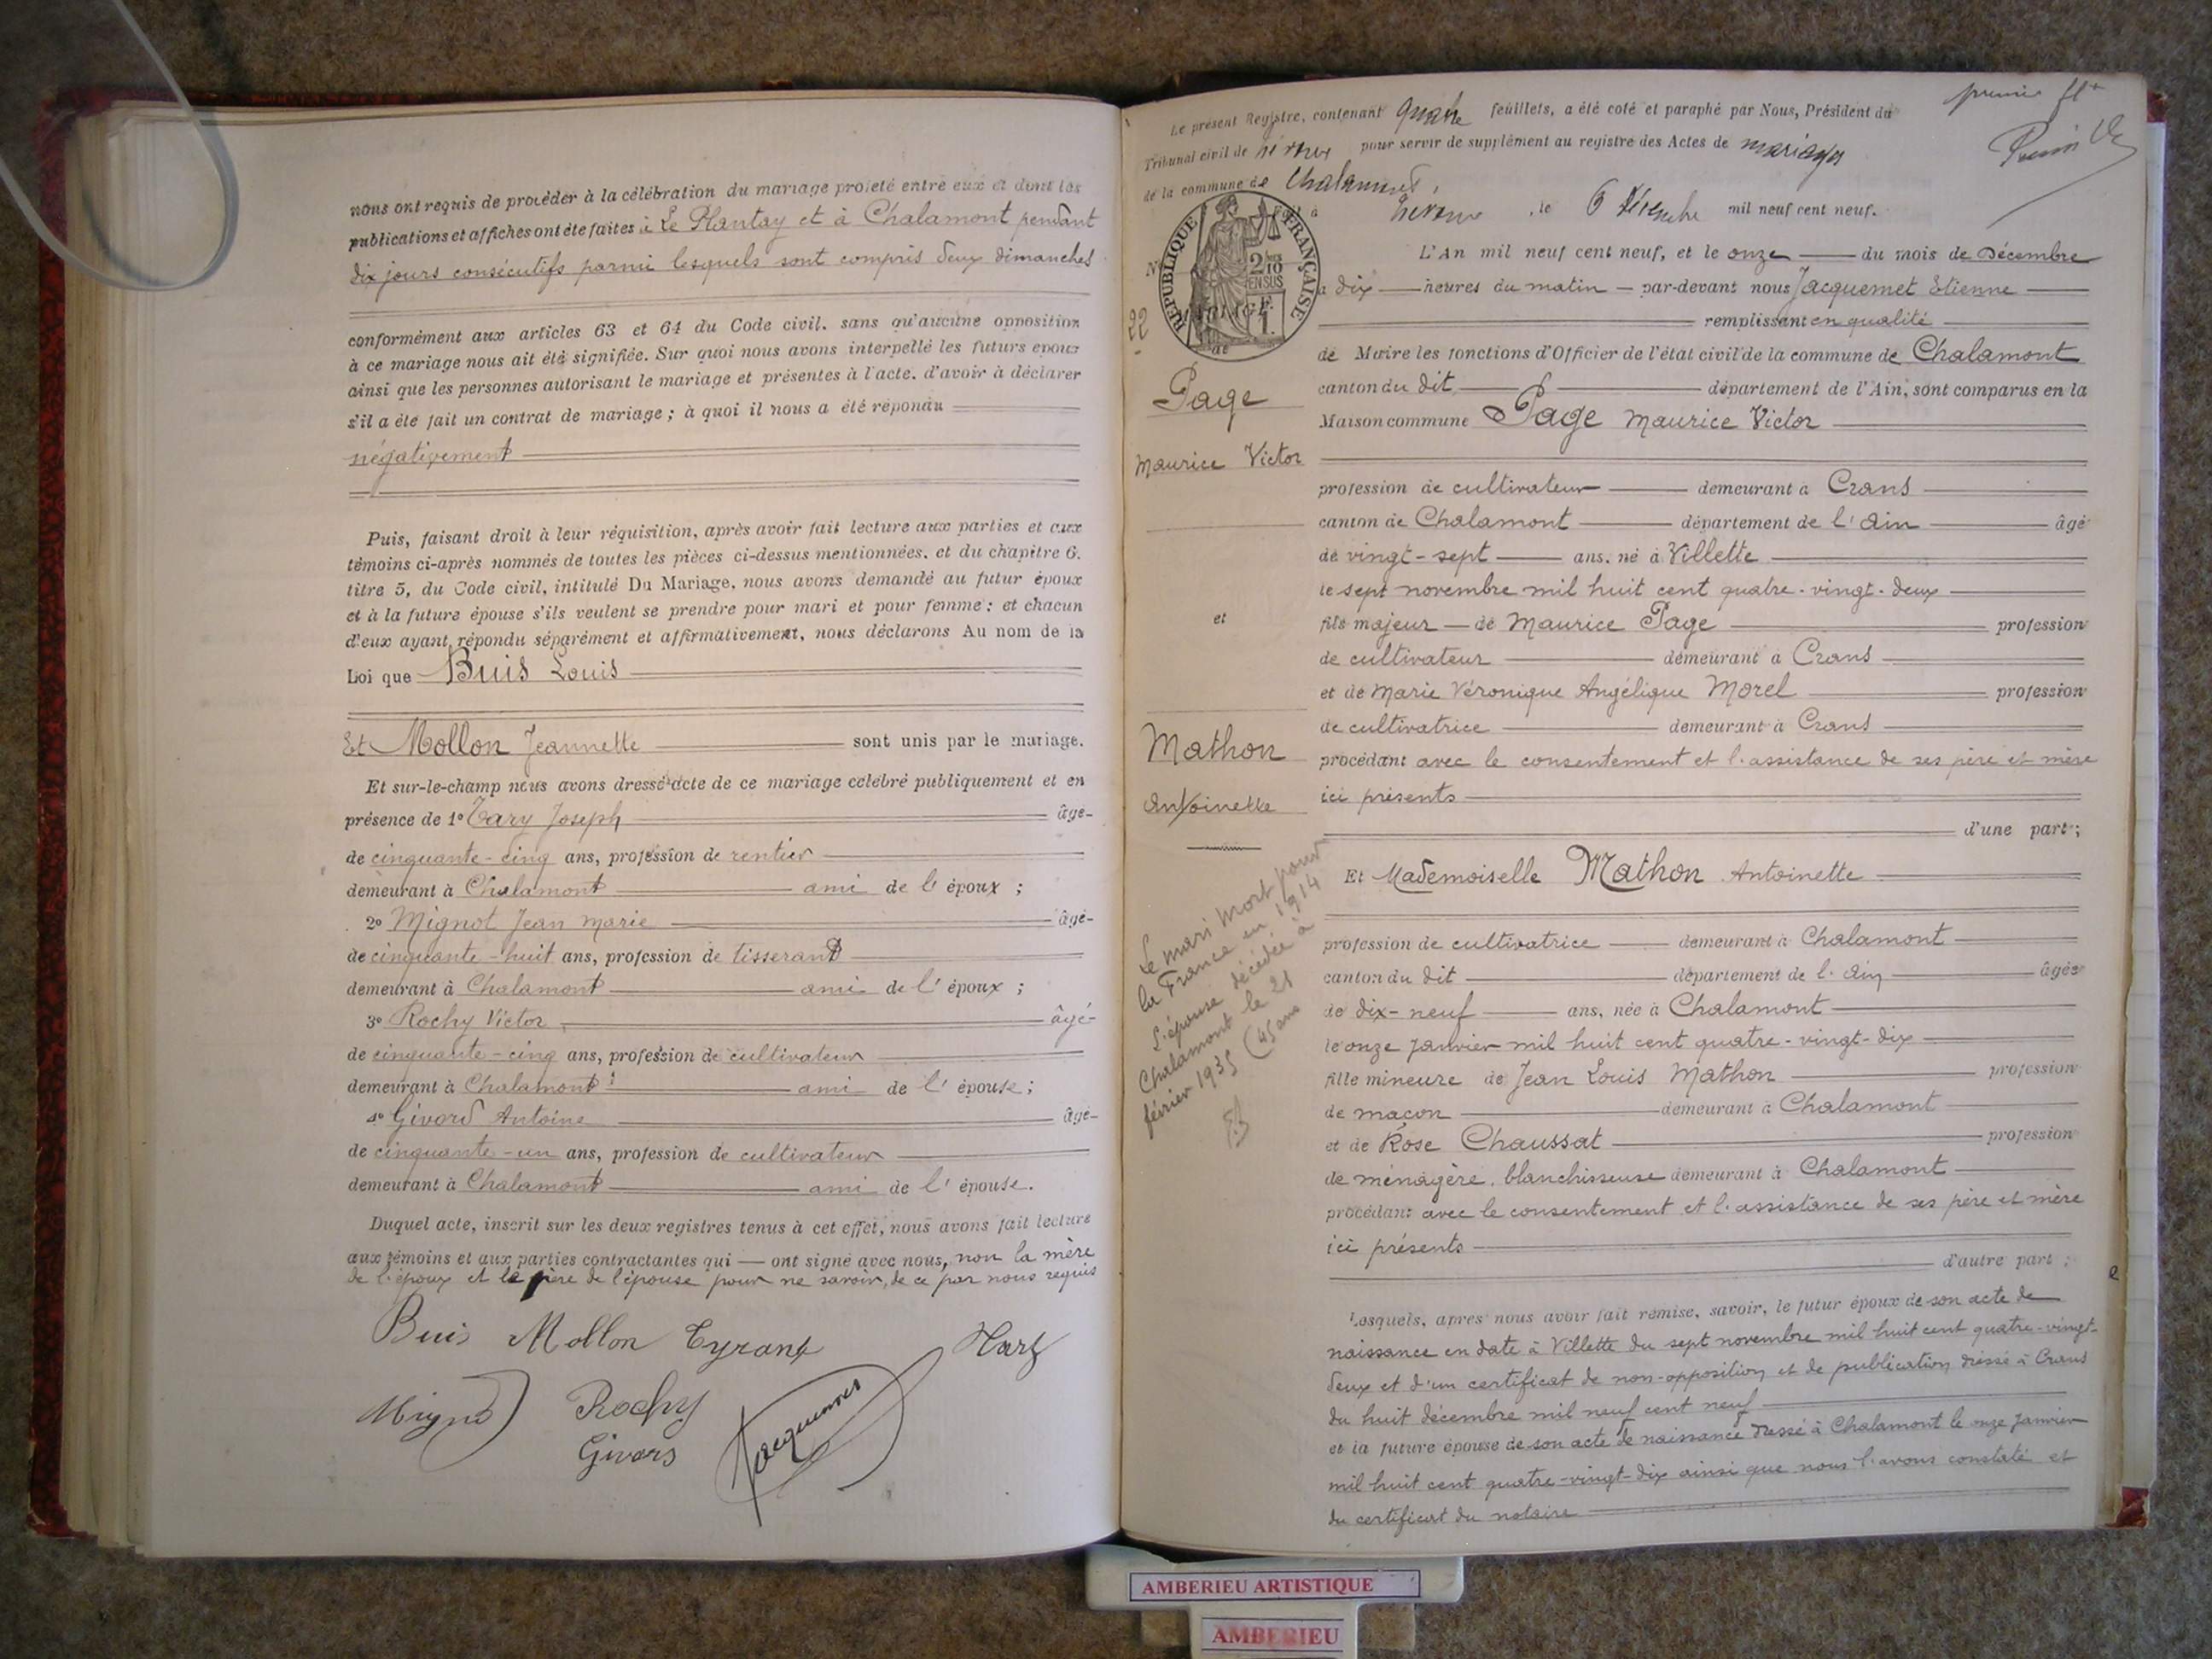 nous ont requis de procéder à la célébration du mariage projeté entre eux et dont les
publications et affiches ont été faites à Le Plantay et à Chalamont pendant
dix jours consécutifs parmi lesquels sont compris deux dimanches
conformément aux articles 63 et 64 du Code civil. sans qu'aucune opposition
à ce mariage nous ait été signifiée. Sur quoi nous avons interpellé les futurs époux
ainsi que les personnes autorisant le mariage et présentes à l'acte. d'avoir à déclarer
s'il a été fait un contrat de mariage ; à quoi il nous a été répondu
négativement
Puis, faisant droit à leur réquisition, après avoir fait lecture aux parties et aux
témoins ci-après nommés de toutes les pièces ci-dessus mentionnées. et du chapitre 6.
titre 5, du Code civil, intitulé Du Mariage, nous avons demandé au futur époux
et à la future épouse s'ils veulent se prendre pour mari et pour femme : et chacun
d'eux ayant répondu séparément et affirmativement, nous déclarons Au nom de la
Loi que Buis Louis
Et Mollon Jeannette sont unis par le mariage.
Et sur-le-champ nous avons dressé acte de ce mariage célébré publiquement et en
présence de 1° Tary Joseph âgé
de cinquante-cinq ans, profession de rentier
demeurant à Chalamont ami de l'époux ;
2° Mignot Jean Marie âgé
de cinquante-huit ans, profession de tisserand
demeurant à Chalamont ami de l'époux ;
3° Rochy Victor âgé
de cinquante-cinq ans, profession de cultivateur
demeurant à Chalamont ami de l'épouse ;
4° Givord Antoine âgé
de cinquante-un ans, profession de cultivateur
demeurant à Chalamont ami de l'épouse.
Duquel acte, inscrit sur les deux registres tenus à cet effet, nous avons fait lecture
aux témoins et aux parties contractantes qui — ont signé avec nous, non la mère
de l'époux et le père de l'épouse pour ne savoir, de ce par nous requis
Buis Mollon Tyrand
Mignot Rochy
Givord Jacquemet
premier
Le présent Registre, contenant quatre feuillets, a été coté et paraphé par Nous, Président du
Tribunal civil de Trévoux pour servir de supplément au registre des Actes de mariages
de la commune de Chalamont,
Fait à Trévoux, le 6 Décembre mil neuf cent neuf.
RÉPUBLIQUE FRANÇAISE
2/10 EN SUS
N°
22
MARIAGE
de
Page
Maurice Victor
et
Mathon
Antoinette
Le mari mort pour
la France en 1914
L'épouse décédée à
Chalamont le 21
février 1935 (45 ans
L'An mil neuf cent neuf, et le onze du mois de Décembre
à dix heures du matin par-devant nous Jacquemet Etienne
remplissant en qualité
de Maire les fonctions d'Officier de l'état civil de la commune de Chalamont
canton du dit département de l'Ain, sont comparus en la
Maison commune Page Maurice Victor
profession de cultivateur demeurant à Crans
canton de Chalamont département de l'Ain âgé
de vingt-sept ans, né à Villette
le sept novembre mil huit cent quatre-vingt-deux
fils majeur de Maurice Page profession
de cultivateur demeurant à Crans
et de Marie Véronique Angélique Morel profession
de cultivatrice demeurant à Crans
procédant avec le consentement et l'assistance de ses père et mère
ici présents
d'une part ;
Et Mademoiselle Mathon Antoinette
profession de cultivatrice demeurant à Chalamont
canton du dit département de l'Ain âgée
de dix-neuf ans, née à Chalamont
le onze janvier mil huit cent quatre-vingt-dix
fille mineure de Jean Louis Mathon profession
de maçon demeurant à Chalamont
et de Rose Chaussat profession
de ménagère, blanchisseuse demeurant à Chalamont
procédant avec le consentement et l'assistance de ses père et mère
ici présents
d'autre part ;
Lesquels, après nous avoir fait remise, savoir, le futur époux de son acte de
naissance en date à Villette du sept novembre mil huit cent quatre-vingt-
deux et d'un certificat de non-opposition et de publication dressé à Crans
du huit décembre mil neuf cent neuf
et la future épouse de son acte de naissance dressé à Chalamont le onze janvier
mil huit cent quatre-vingt-dix ainsi que nous l'avons constaté et
du certificat du notaire
AMBERIEU ARTISTIQUE
AMBERIEU